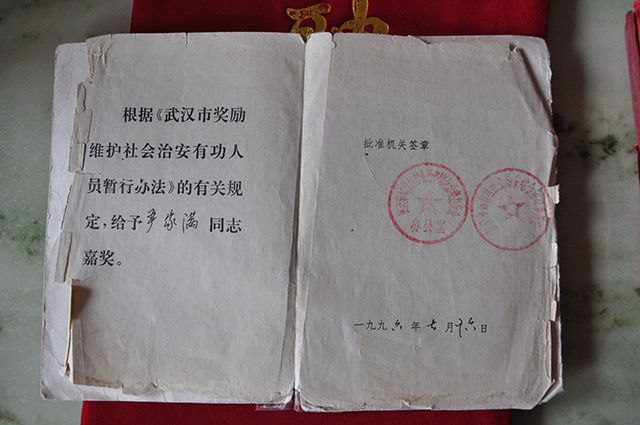 根据《武汉市奖励
维护社会治安有功人
员暂行办法》的有关规
定，给予尹家满同志
嘉奖。
批准机关签章
办公室
一九九六年七月廿六日